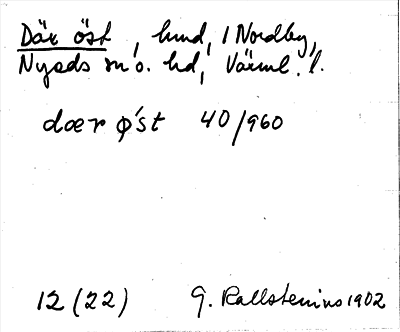 Där öst, hmd, i Nordby,
Nyeds sn o. hd, Värml. l.
dœr ǿst 40/960
12 (22) G. Kallstenius 1902